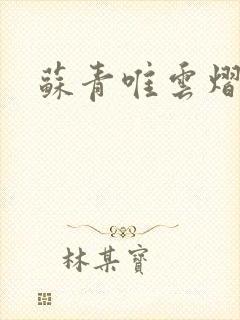 蘇青唯雲熠
林某寶